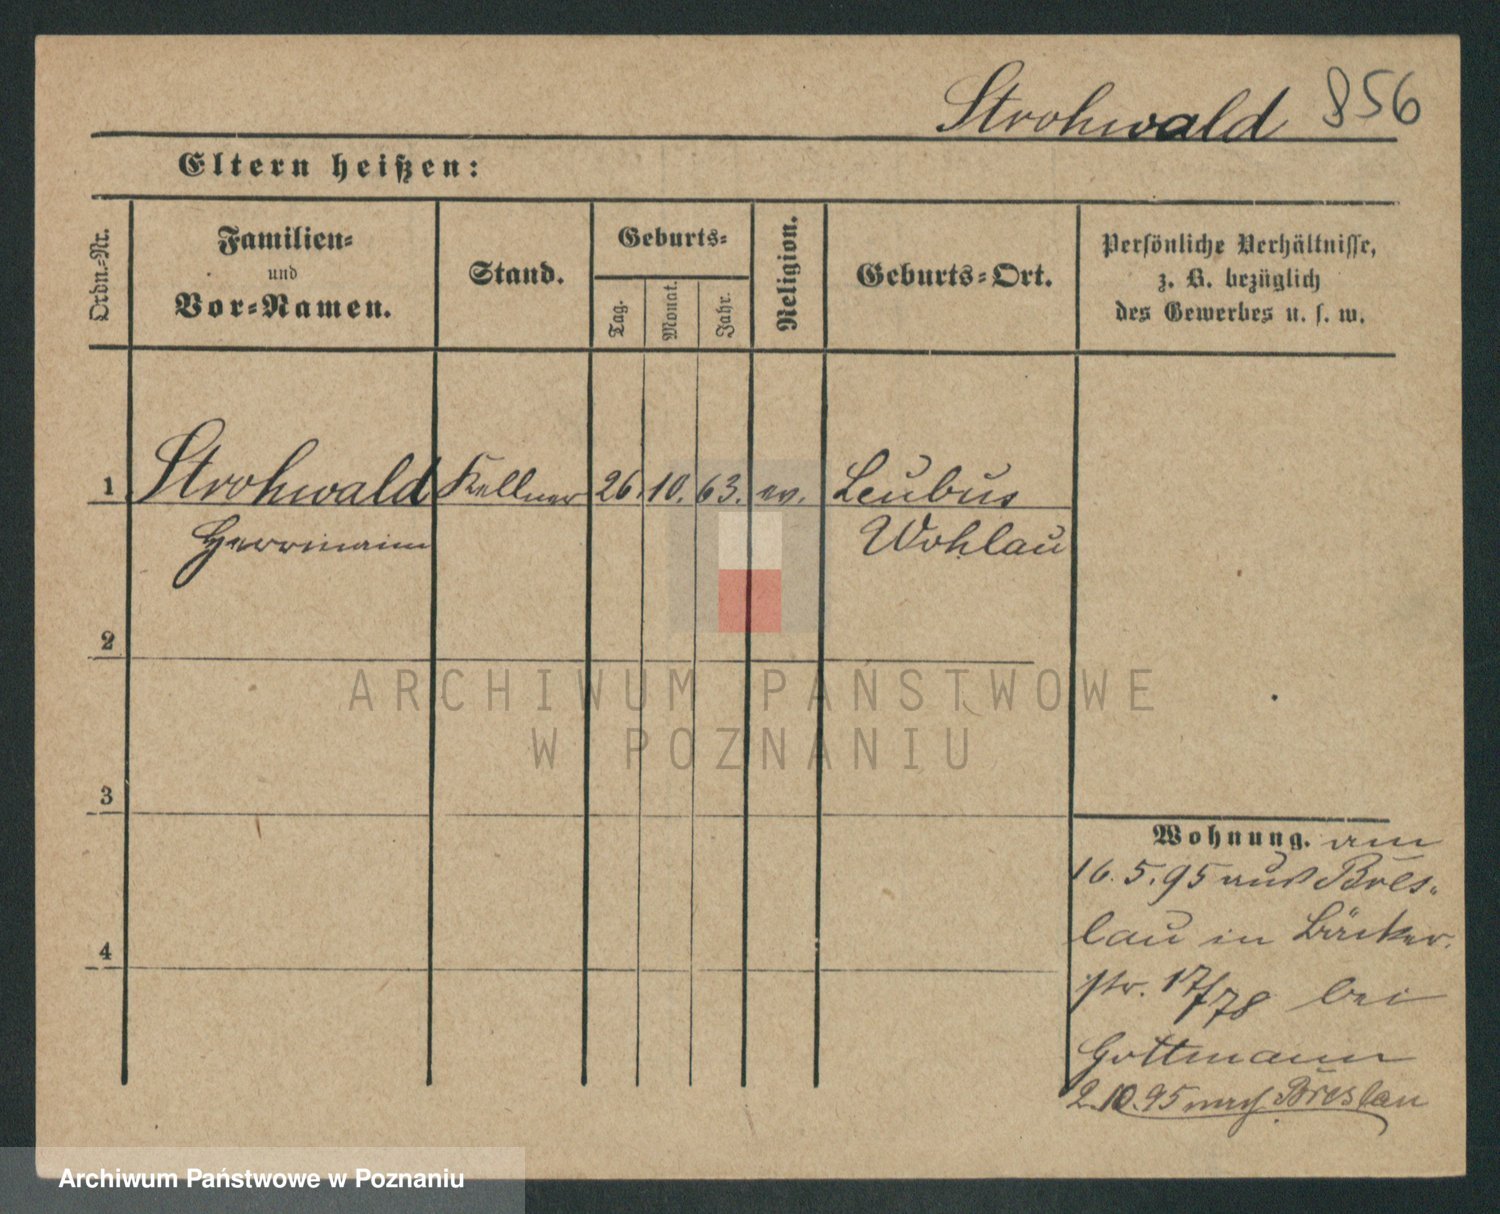 Strohwald 856
Eltern heißen:
Ordn.-Nr.
Familien-
und
Vor-Namen.
Stand.
Geburts-
Tag.
Monat.
Jahr.
Religion.
Geburts-Ort.
Persönliche Verhältnisse,
z. B. bezüglich
des Gewerbes u. s. w.
1 Strohwald Kellner 26. 10. 63. ev. Leubus
Herrmann Wohlau
2
ARCHIWUM PAŃSTWOWE
W POZNANIU
3
Wohnung. am
16.5.95 aus Bres-
lau in Bäcker-
str. 17/78 bei
Gottmann
2.10.95 nach Breslau
4
Archiwum Państwowe w Poznaniu